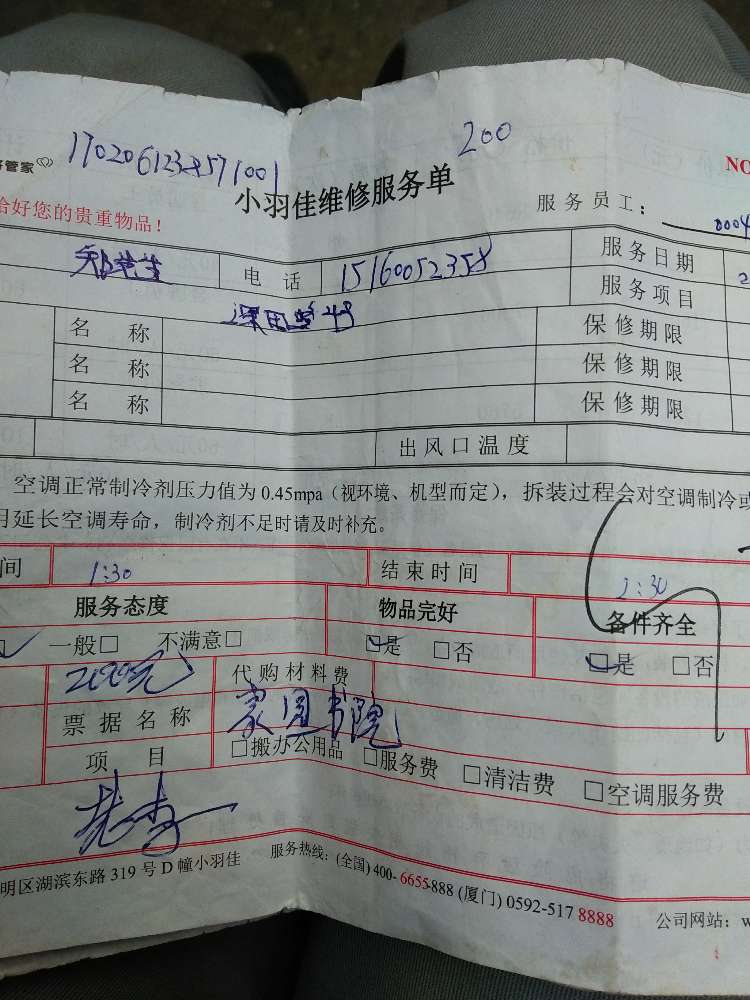 管家 1702061238571001 200
小羽佳维修服务单 NO
恰好您的贵重物品! 服务员工: 0004
电话 15160052358 服务日期 2
服务项目
名称 保修期限
名称 保修期限
名称 保修期限
出风口温度
空调正常制冷剂压力值为 0.45mpa(视环境、机型而定),拆装过程会对空调制冷或
月延长空调寿命,制冷剂不足时请及时补充。
间 1:30 结束时间 2:30
服务态度 物品完好 备件齐全
一般□ 不满意□ □是 □否 □是 □否
200元 代购材料费
票据名称 家园书院
项目 □搬办公用品 □服务费 □清洁费 □空调服务费
明区湖滨东路 319 号 D 幢小羽佳 服务热线:(全国)400-6655-888 (厦门) 0592-517 8888 公司网站: w